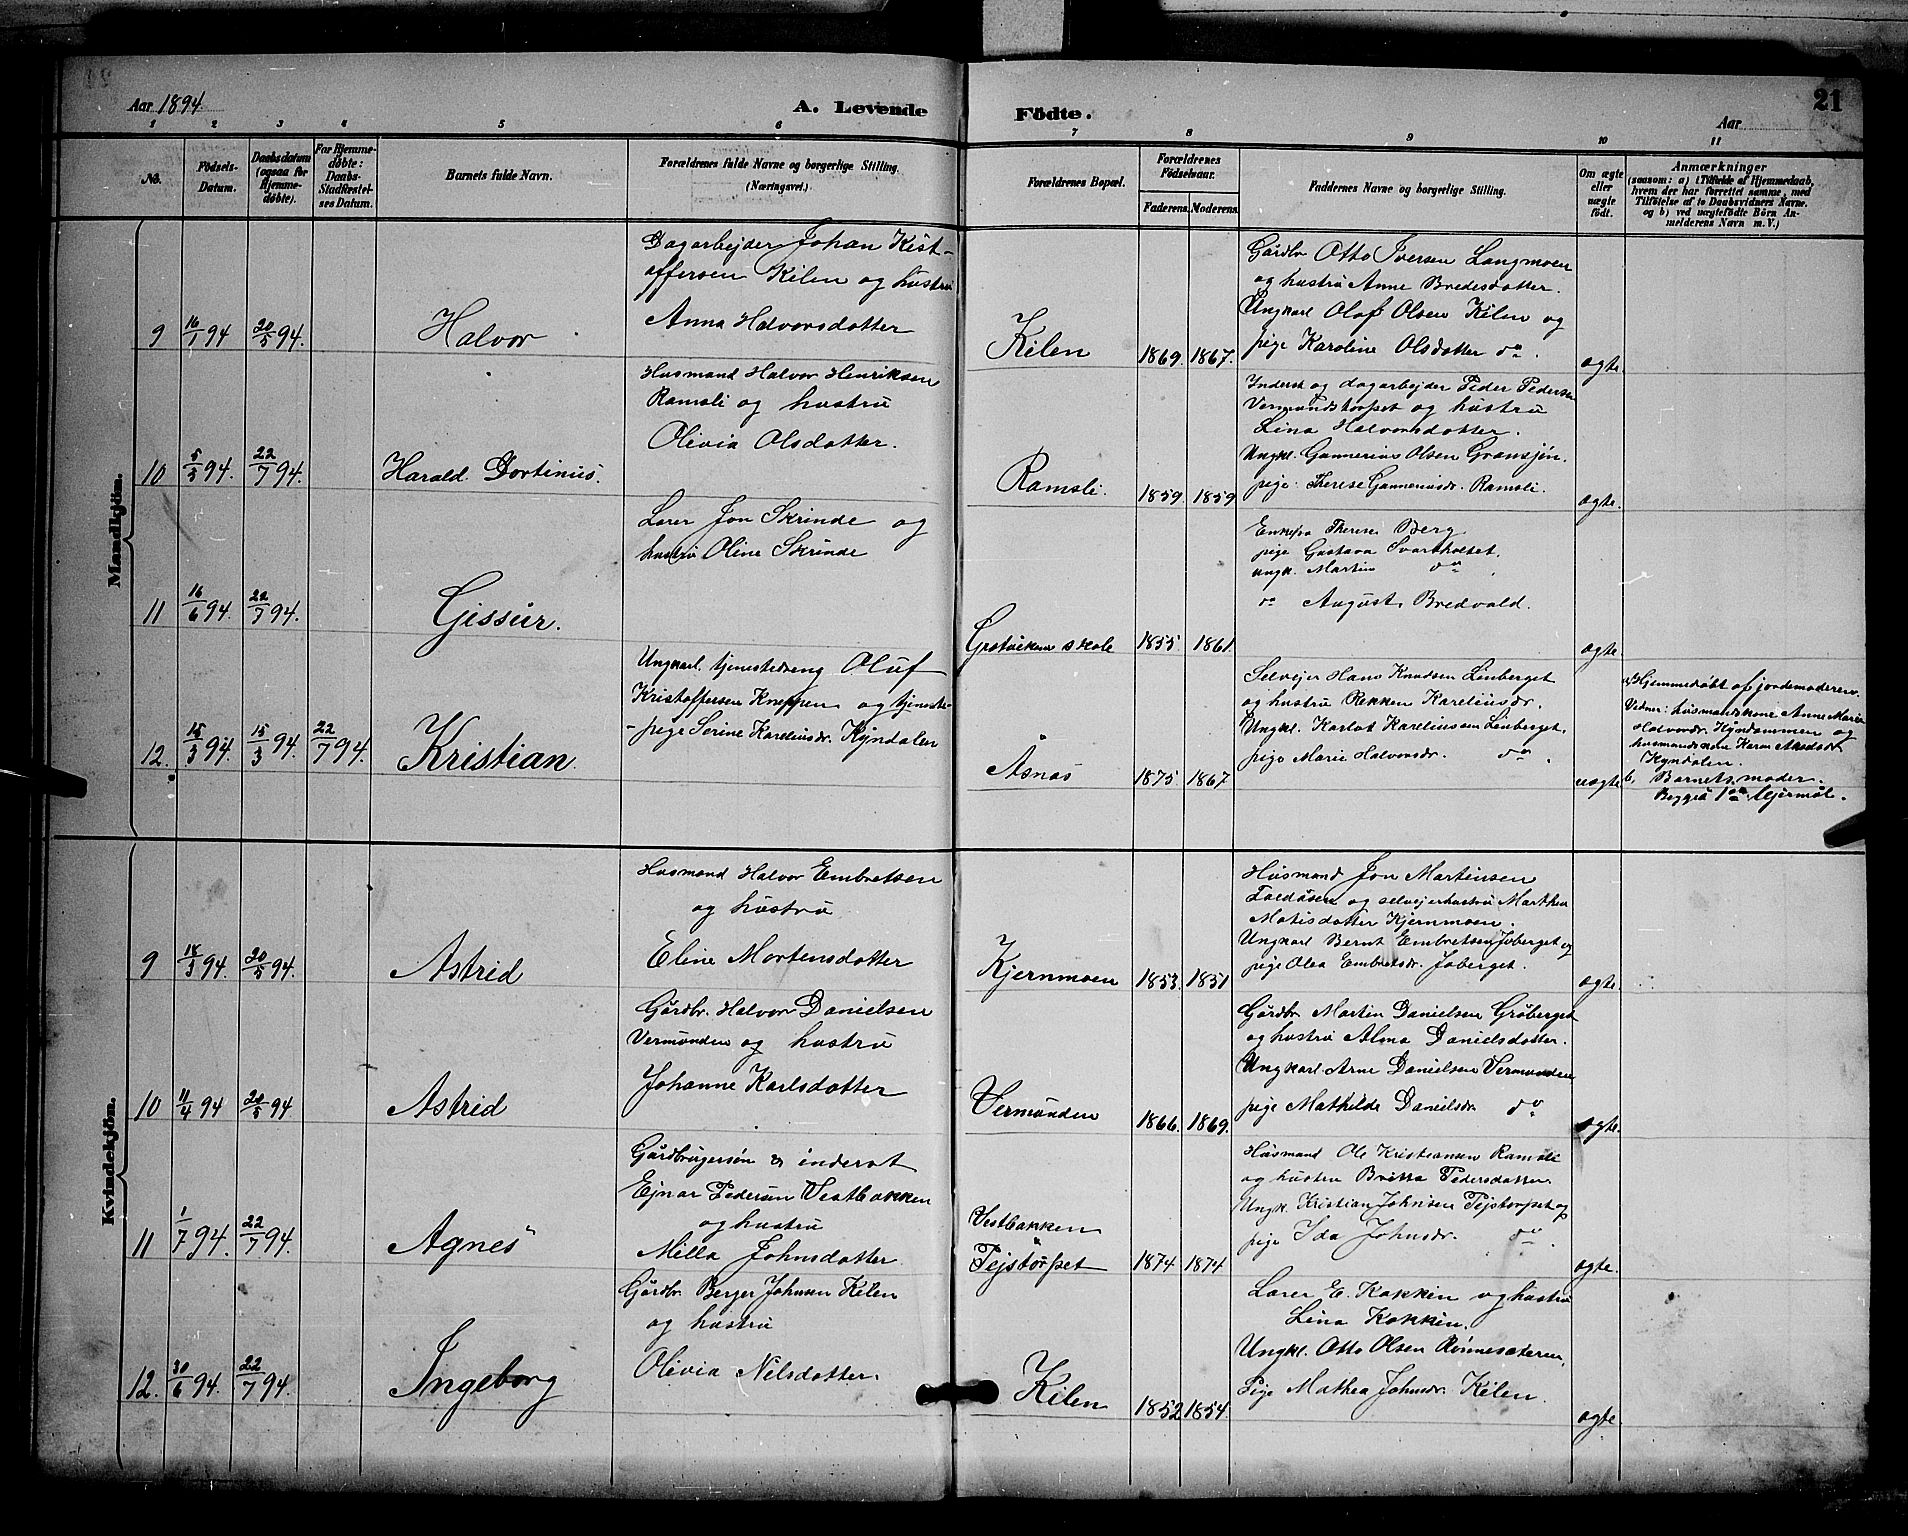 Aar 1894.
A. Levende
Födte.
Aar
21
1 2 3 4 5 6 7 8 9 10 11
No.
Födsels-
Datum.
Daabsdatum
(ogsaa for
Hjemme-
döbte).
For Hjemme-
döbte:
Daabs-
Stadfæstel-
ses Datum.
Barnets fulde Navn.
Forældrenes fulde Navne og borgerlige Stilling.
(Næringsvei.)
Forældrenes Bopæl.
Forældrenes
Födselsaar.
Faderens. Moderens.
Faddernes Navne og borgerlige Stilling.
Om ægte
eller
uægte
født.
Anmærkninger
(saasom: a) i Tilfælde af Hjemmedaab,
hvem der har forrettet samme, med
Tilföielse af to Daabsvidners Navne.
og b) ved uægtefödte Börn An-
melderens Navn m. V.)
Mandkjön.
9 16/1 94 20/5 94. Halvor
Dagarbejder Johan Krist-
offersen Kilen og hustru
Anna Halvorsdatter
Kilen 1869. 1867.
Gårdbr Otto Iversen Langmoen
og hustru Anne Bredesdatter.
Ungkarl Olaf Olsen Kilen og
pige Karoline Olsdatter do.
ægte.
10 5/3 94. 22/7 94. Harald Dortinus.
Husmand Halvor Henriksen
Ramsli og hustru
Olivia Olsdatter.
Ramsli. 1859. 1859
Inderst og dagarbejder Peder Pedersen
Vermundstorpet og hustru
Lina Halvorsdatter.
Ungk. Gunnerius Olsen Gransjøn.
pige Therese Gunneriusdr. Ramsli.
ægte.
11 16/6 94. 22/7 94. Gissur.
Lærer Jon Skrinde og
hustru Oline Skrinde
Grøtviken skole 1855 1861
Enkefru Therese Berg
pige Gustava Svartholtet.
Ungk. Martin do
do August Bredvald.
ægte.
12. 15/3 94. 15/3 94. 22/7 94. Kristian.
Ungkarl, tjenestedreng Oluf
Kristoffersen Kneppen og tjeneste-
-pige Serine Kareliusdr. Kyndalen
Åsnæs 1875. 1867
Selvejer Hans Knudsen Linberget
og hustru Rikken Kareliusdr.
Ungk. Karlot Kareliussen Linberget.
pige Marie Halvorsdr. do.
uægte
a) Hjemmedøbt af jordemoderen.
Vidner: husmandskone Anne Marie
Halvorsdr. Kyndammen og
husmandskone Karen
Kyndalen.
b. Barnets moder.
Begges 1ste lejermål.
Kvindekjön.
9 18/3 94. 20/5 94. Astrid
Husmand Halvor Embretsen
og hustru
Eline Mortensdatter
Kjernmoen 1853. 1851
Husmand Jon Martinsen
og selvejerhustru Marthea
Matisdatter Kjernmoen.
Ungkarl Bernt Embretsen Joberget og
pige Olea Embretsdr. Joberget.
ægte.
10 11/4 94 20/5 94 Astrid
Gårdbr. Halvor Danielsen
Vermunden og hustru
Johanne Karlsdatter
Vermunden 1866. 1869.
Gårdbr. Martin Danielsen Gråberget
og hustru Alma Danielsdatter.
Ungkarl Arne Danielsen Vermunden
pige Mathilde Danielsdr. do
ægte.
11 1/7 94. 22/7 94. Agnes
Gårdbrugersøn & inderst
Ejnar Pedersen Vestbakken
og hustru
Milla Johnsdatter
Vestbakken
Tejstorpet 1874 1874
Husmand Ole Kristiansen Ramsli
og hustru Britta Pedersdatter.
Ungk. Kristian Johnsen Tejstorpet og
pige Ida Johnsdr. do.
ægte.
12. 30/6 94. 22/7 94. Ingeborg
Gårdbr. Berger Johnsen Kilen
og hustru
Olivia Nilsdatter.
Kilen 1852 1854.
Lærer E. Kokkin og hustru
Lina Kokkin.
Ungk. Otto Olsen Rønnesæteren,
Pige Mathea Johnsdr. Kilen.
ægte.